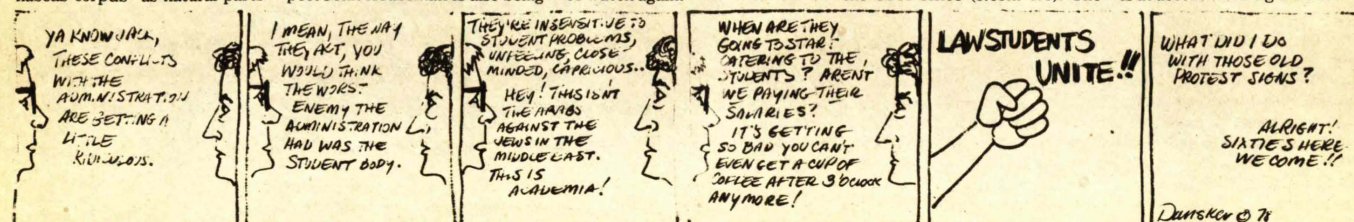 YA KNOW JACK,
THESE CONFLICTS
WITH THE
ADMINISTRATION
ARE GETTING A
LITTLE
RIDICULOUS.
I MEAN, THE WAY
THEY ACT, YOU
WOULD THINK
THE WORST
ENEMY THE
ADMINISTRATION
HAD WAS THE
STUDENT BODY.
THEY'RE INSENSITIVE TO
STUDENT PROBLEMS,
UNFEELING, CLOSE
MINDED, CAPRICIOUS..
HEY! THIS ISNT
THE ARABS
AGAINST THE
JEWS IN THE
MIDDLE EAST.
THIS IS
ACADEMIA!
WHEN ARE THEY
GOING TO START
CATERING TO THE
STUDENTS? ARENT
WE PAYING THEIR
SALARIES?
IT'S GETTING
SO BAD YOU CAN'T
EVEN GET A CUP OF
COFFEE AFTER 3 O'CLOCK
ANYMORE!
LAW STUDENTS
UNITE!!
WHAT DID I DO
WITH THOSE OLD
PROTEST SIGNS?
ALRIGHT!
SIXTIES HERE
WE COME!!
Dansker © 78